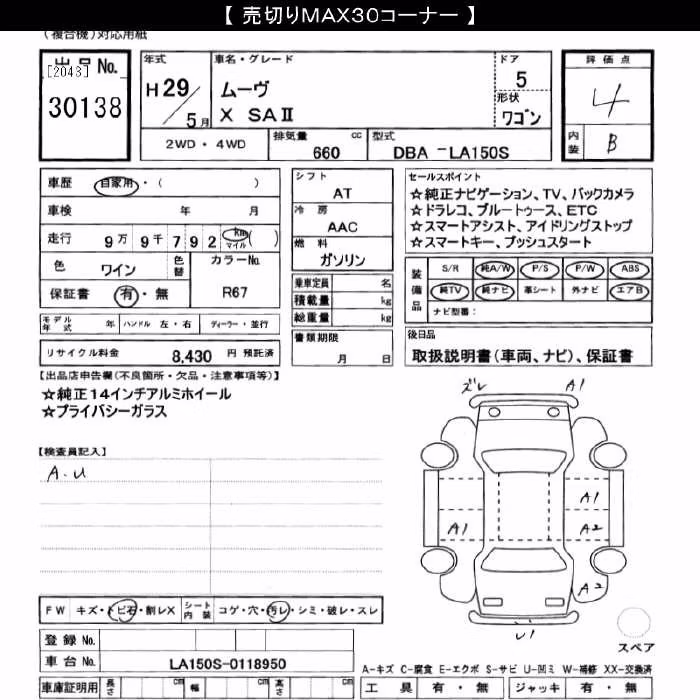 【 売切りMAX30コーナー 】
(複合機)対応用紙
出品No.
[2043]
30138
年式
H29/5月
車名・グレード
ムーヴ
X SAⅡ
ドア
5
形状
ワゴン
評価点
4
内装
B
2WD・4WD
排気量
660 cc
型式
DBA -LA150S
車歴 自家用・( )
車検 年 月
走行 9万9千792 km マイル ( )
色 ワイン
色替
カラーNo.
R67
保証書 有・無
シフト
AT
冷房
AAC
燃料
ガソリン
乗車定員 名
積載量 kg
総重量 kg
セールスポイント
☆純正ナビゲーション、TV、バックカメラ
☆ドラレコ、ブルートゥース、ETC
☆スマートアシスト、アイドリングストップ
☆スマートキー、プッシュスタート
装備品
S/R 純A/W P/S P/W ABS
純TV 純ナビ 革シート 外ナビ エアB
ナビ型番:
モデル年式 年 ハンドル 左・右 ディーラー・並行
書類期限
月 日
後日品
取扱説明書(車両、ナビ)、保証書
リサイクル料金 8,430 円 預託済
【出品店申告欄(不良箇所・欠品・注意事項等)】
☆純正14インチアルミホイール
☆プライバシーガラス
【検査員記入】
A・U
ズレ
A1
A1
A1
A2
A2
U1
スペア
FW キズ・トビ石・割レX
シート内装 コゲ・穴・汚レ・シミ・破レ・スレ
登録No.
車台No. LA150S-0118950
A-キズ C-腐食 E-エクボ S-サビ U-凹ミ W-補修 XX-交換済
車庫証明用 長さ cm 幅 cm 高さ cm
工具 有・無 ジャッキ 有・無